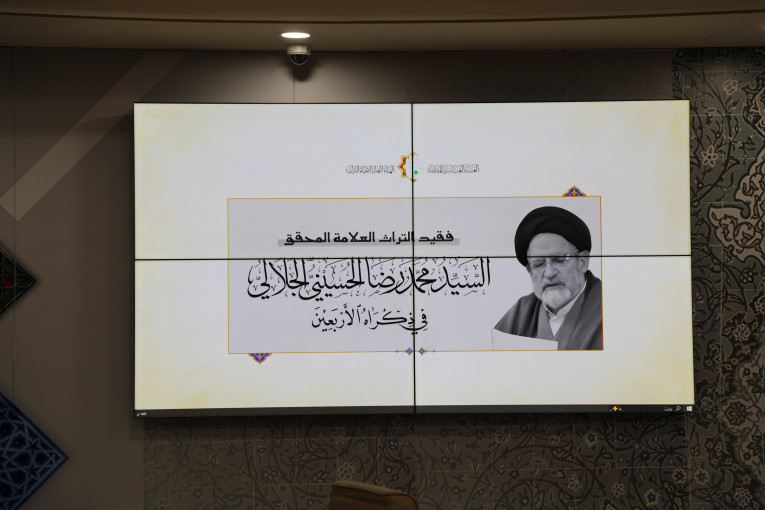 فقيد التراث العلامة المحقق
السَّيِّد مُحَمَّد رِضَا الحُسَيْنِيّ الجَلَالِيّ
فِي ذِكْرَاهُ الأَرْبَعِيْنَ